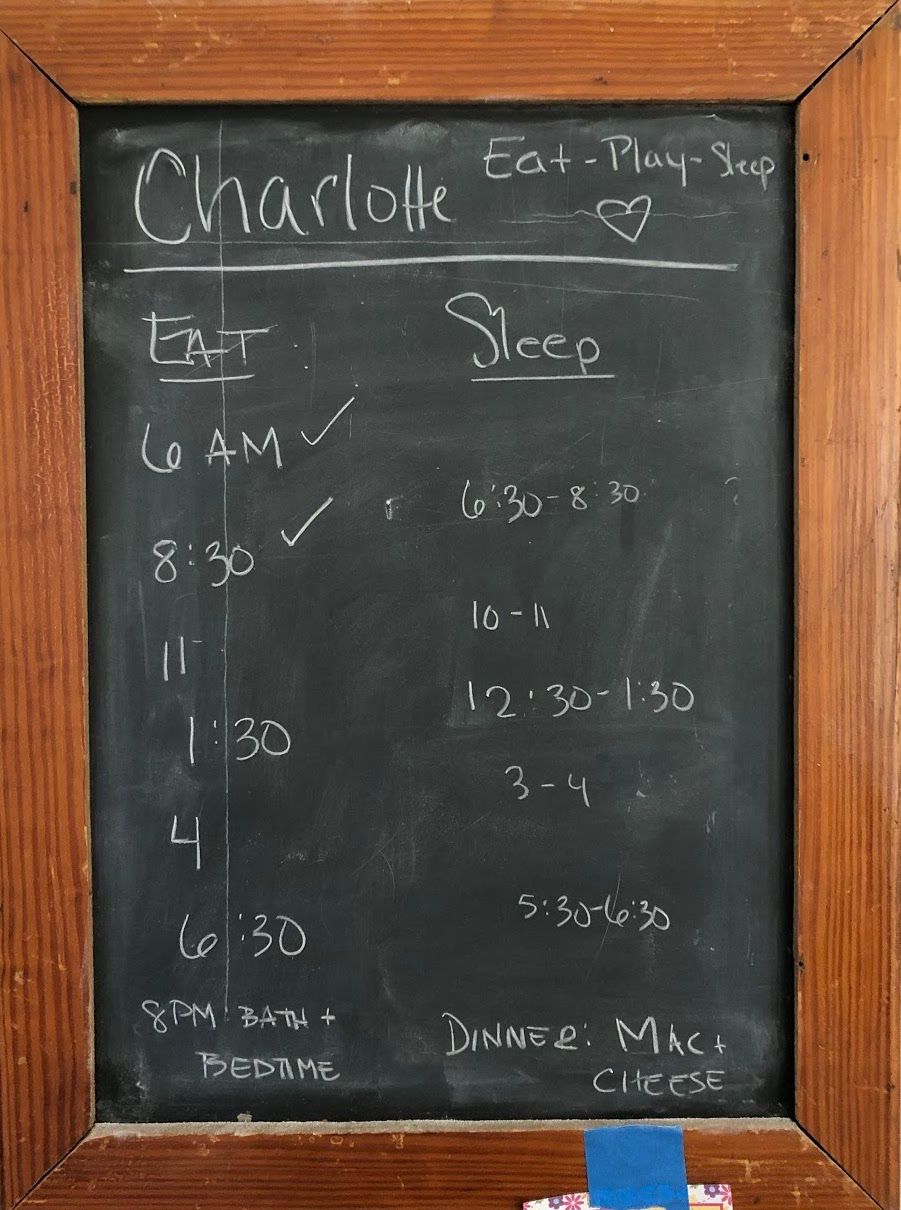 Charlotte
Eat-Play-Sleep
EAT
Sleep
6 AM ✓
6:30-8:30
8:30 ✓
10-11
11
12:30-1:30
1:30
3-4
4
5:30-6:30
6:30
8PM BATH +
BEDTIME
DINNER: MAC+
CHEESE